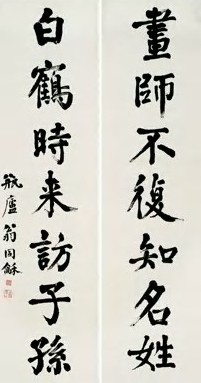 畫師不復知名姓
白鶴時来訪子孫
瓶廬翁同龢